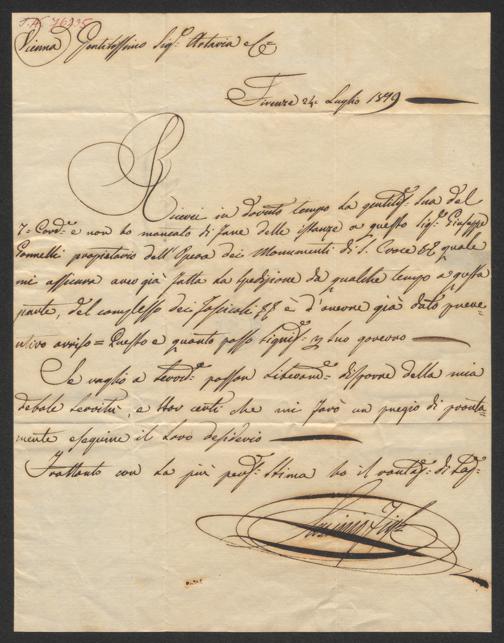 Vienna Gentilissimo Sig.r Artaria e C.o
Firenze 24 Luglio 1819
Ricevei in dovuto tempo la gentiliss.a Sua del
7 Corr.te e non ho mancato di fare delle istanze a questo Sig.r Giuseppe
proprietario dell'Opera dei Monumenti di S. Croce &c quale
mi assicura aver già fatta la Spedizione da qualche tempo a questa
parte, del complesso dei fascicoli e d'averne già dato preve-
ntivo avviso = Questo è quanto posso signif.e p suo governo
Se vaglio a possan liberam.e disporre della mia
debole servitù, e certi che mi farò un pregio di pronta-
mente eseguire il loro desiderio
Frattanto con la più perf.a Stima ho il